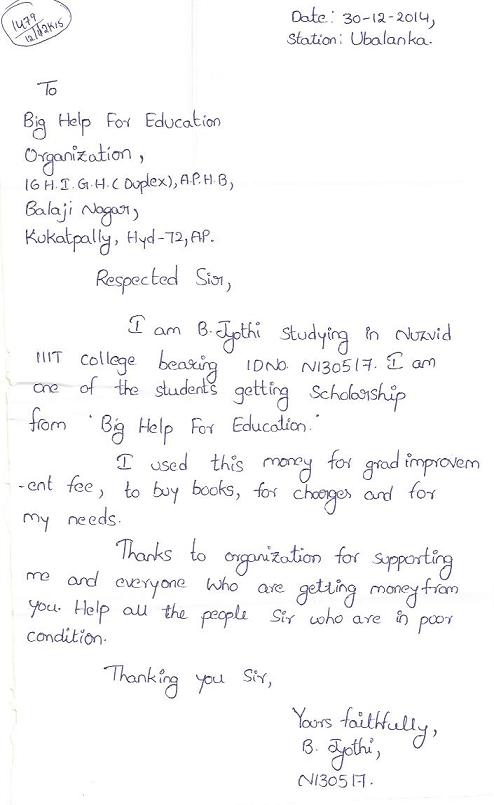 1479
12/12K15
Date: 30-12-2014,
Station: Ubalanka.
To
Big Help For Education
Organization,
IG H.I.G.H.( Duplex), A.P.H.B,
Balaji Nagar,
Kukatpally, Hyd-72, AP.
Respected Sir,
I am B. Jyothi studying in Nuzvid
IIIT college bearing IDNo. N130517. I am
one of the students getting Scholarship
from 'Big Help For Education.'
I used this money for grad improvem
-ent fee, to buy books, for charges and for
my needs.
Thanks to organization for supporting
me and everyone who are getting money from
you. Help all the people Sir who are in poor
condition.
Thanking you Sir,
Yours faithfully,
B. Jyothi,
N130517.